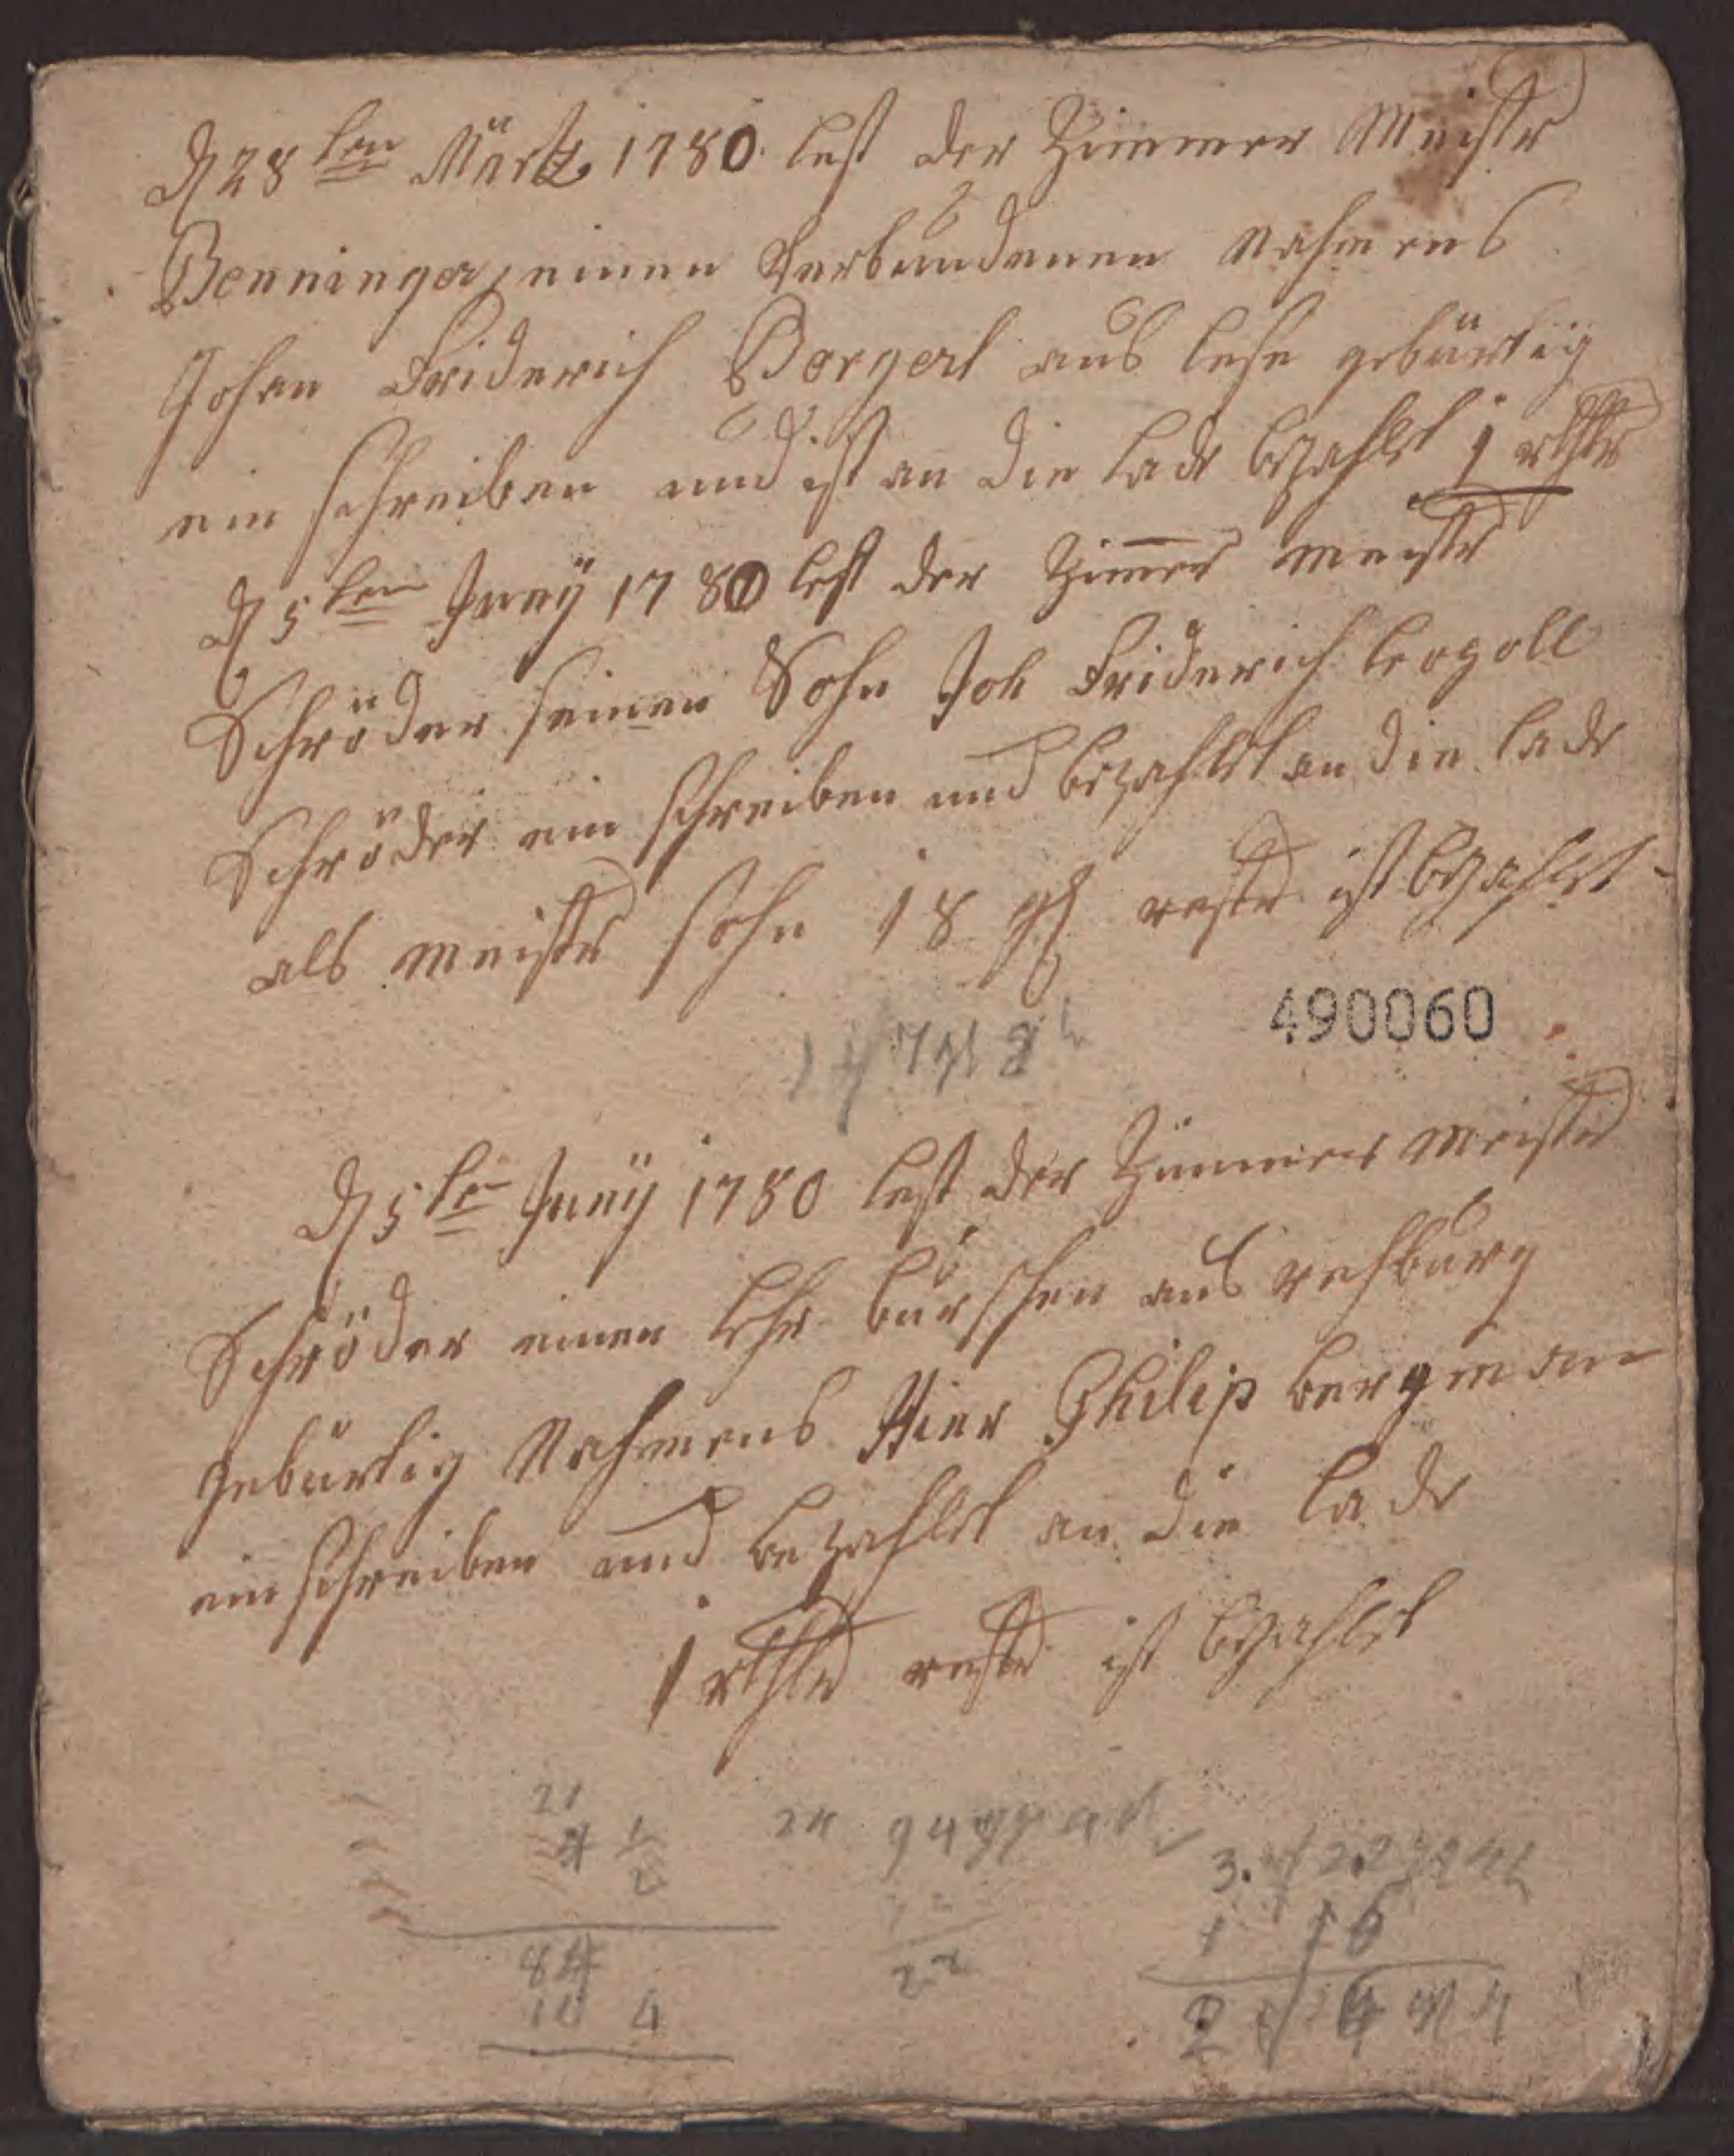 d 28ten Märtz 1780 lest der Zimmer Meistr
Benninger, einen Verbundenen Nahmens
Johan Friderich Borgert aus lese gebürtig
ein schreiben und ist an die lade bezahlet 1 rthlr
d 5ten Juny 1780 lest der Zimer meistr
Schröder seinen Sohn Joh Friderich leopoll
Schröder ein schreiben und bezahlet an die lade
als meistr sohn 18 gg restr ist bezahlet
490060
d 5ten Juny 1780 lest der Zimmer meistr
Schröder einen lehr burschen aus rehburg
gebürtig Nahmens Hinr Philip bergman
ein schreiben und bezahlet an die lade
1 rthlr restr ist bezahlet
21
4 1/2
84
10 4
22
3.
1 16